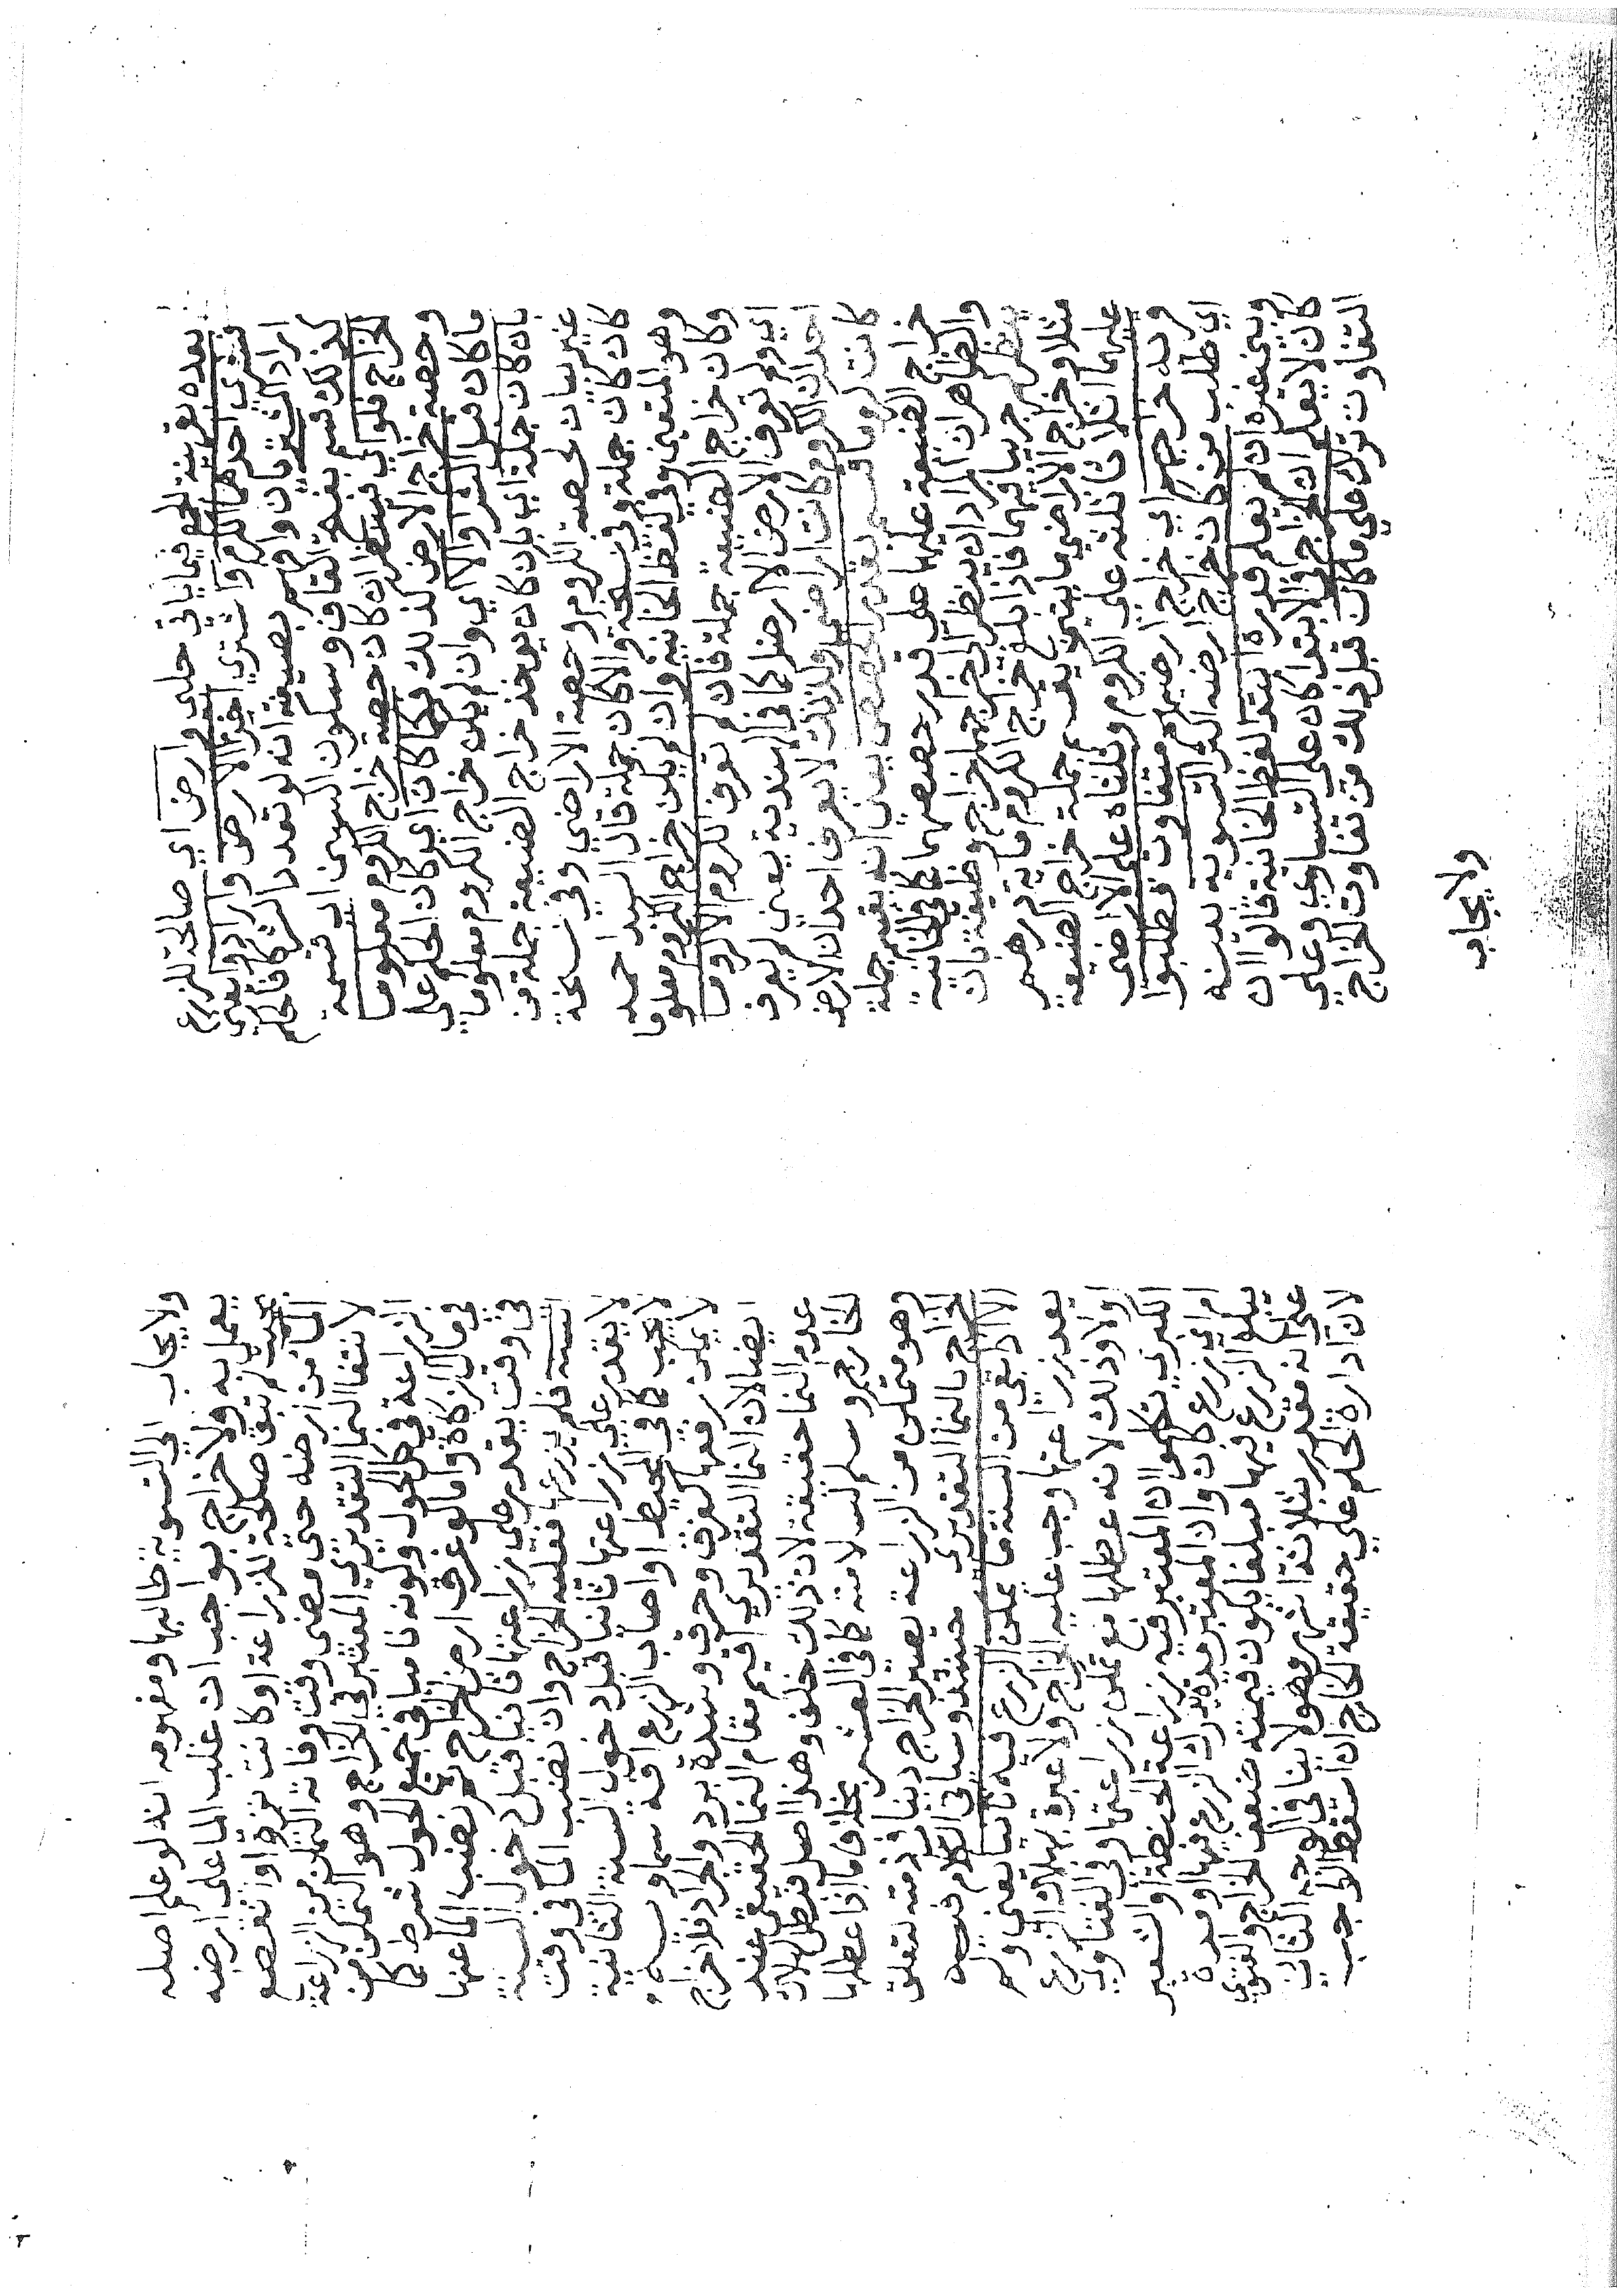 بعده بقرينة الجمع فيما ياتي حلي وارض اي صالحة للزرع
فشري احدهما الكرم واشتري اخر الارض وارادوا يعني
اراد المشتريان واقسم بصيغة انه لو تعدد الشركا فالحكم
كذلك قسم بفتح القاف وسكون السين اي قسمة
الخراج فلو اي فينظر ان كان حصة خراج الكروم معلوما
وحصة خراج الارض كذلك فكما كان اي وكان الحكم علي
ما كان قبل الشرا والا اي وان لم يكن خراج الكروم معلوما
بان كان جملة اي بان كان يوخذ خراج الضيعة جملة من
غير بيان لحصة الكروم وحصة الاراضي وفي نسخة
كان كان جملة وفي نسخة والا كان جملة قال السيد احمد
وهو المتعين وفي لفظ الخانية وان لم يكن خراج الكروم معلوما
وكان خراج الضيعة جملة فان لم تعرف الكروم الا كروما
اي ولم تعرف الارض الا ارضا كما في الهندية يعني لم يعرف
ان الكروم كانت اراضي وكذلك لا يعرف احد ان الارض
كانت كروما قسم بقدر الحصص يعني انه يقسم جملة
خراج الضيعة عليها علي قدر حصصهما كما في الخانية
والظاهر ان المراد ان ينظر الى خراجها خراج وظيفة بان
ينظر كم جريبا فيهما فاذا بلغ خراج الكروم ماية درهم
مثلا وخراج الاراضي مايتي يقسم جملة خراج الضيعة
عليهما اثلاثا ثلثه علي الكروم وثلثاه علي الاراضي
قرية خراجهم اي خراج اراضيهم متفاوت فطلبوا
اي طلب من كان خراج ارضه اكثر التسوية بينه
وبين غيره ان لم يعلم قدره ابتدا لفظ الخانية قالوا ان
كان لا يعلم ان الخراج في الابتدا كان علي التساوي وعلي
التفاوت ترك علي ما كان قبل ذلك من تفاوت الخراج
ولا يجاب
ولا يجاب الي التسوية طالبها ومفهومه انه لو علم اصله
يعمل به ولا خراج بواجب ان غلب الما علي ارضه
بحيث لم تبق صالحة للزراعة او كانت نزة او
الما من ارضه حتي مضي وقت وفاته التمكن من الزراعة
لانتفا النما التقديري المعتبر في الخراج وهو التمكن من
الزراعة في كل الحول وكونه ناميا في جميع الحول شرط كما
في مال الزكاة واما لو غرق ارض الخراج ثم نضب الما عنها
في وقت يقدر علي زراعتها ثانيا قبل دخول السنة
السنة فلم يزرعها فعليه الخراج وان نضب الما في وقت
لا يقدر علي زراعتها ثانيا قبل دخول السنة الثانية
لا يجب كما في المحيط او اصاب الزرع افة سماوية
لا يمكن دفعها كغرق وحرق وشدة برد والجراد فلا خراج
ايضا لان النما التقديري اقيم مقام النما الحقيقي عند
عدم النما حقيقة لان ذلك خلف وهذا اصل فبطل
الخارج وسلم لسلامته كما في العشر بخلاف ما اذا عطلها
وهو متمكن من الزراعة يصير الخراج دينا في ذمته لتعلق
الخراج بالنما التقديري حينئذ وسياتي الكلام فيه
الا اذا بقي من السنة ما يمكن الزرع فيه ثانيا يعني ولم
يعد زراعتها وجب عليه الخراج ولا عبرة بهلاك الزرع
اولا وذلك لانه عطلها مع تمكن زراعتها وفي الفتاوي
الكبري تكلموا ان المعتبر فيه زراعة الحنطة والشعير
او اي زرع كان وان المعتبر مدة ادراك الزرع فيها او مدة
يبلغ الزرع فيها مبلغا يكون قيمته ضعف الخراج والفتوي
علي انه مقدر بثلاثة اشهر وهو لا ينافي الوجه الثاني
لان ادارة الحكم علي حقيقة الخارج ان اسقط الواجب